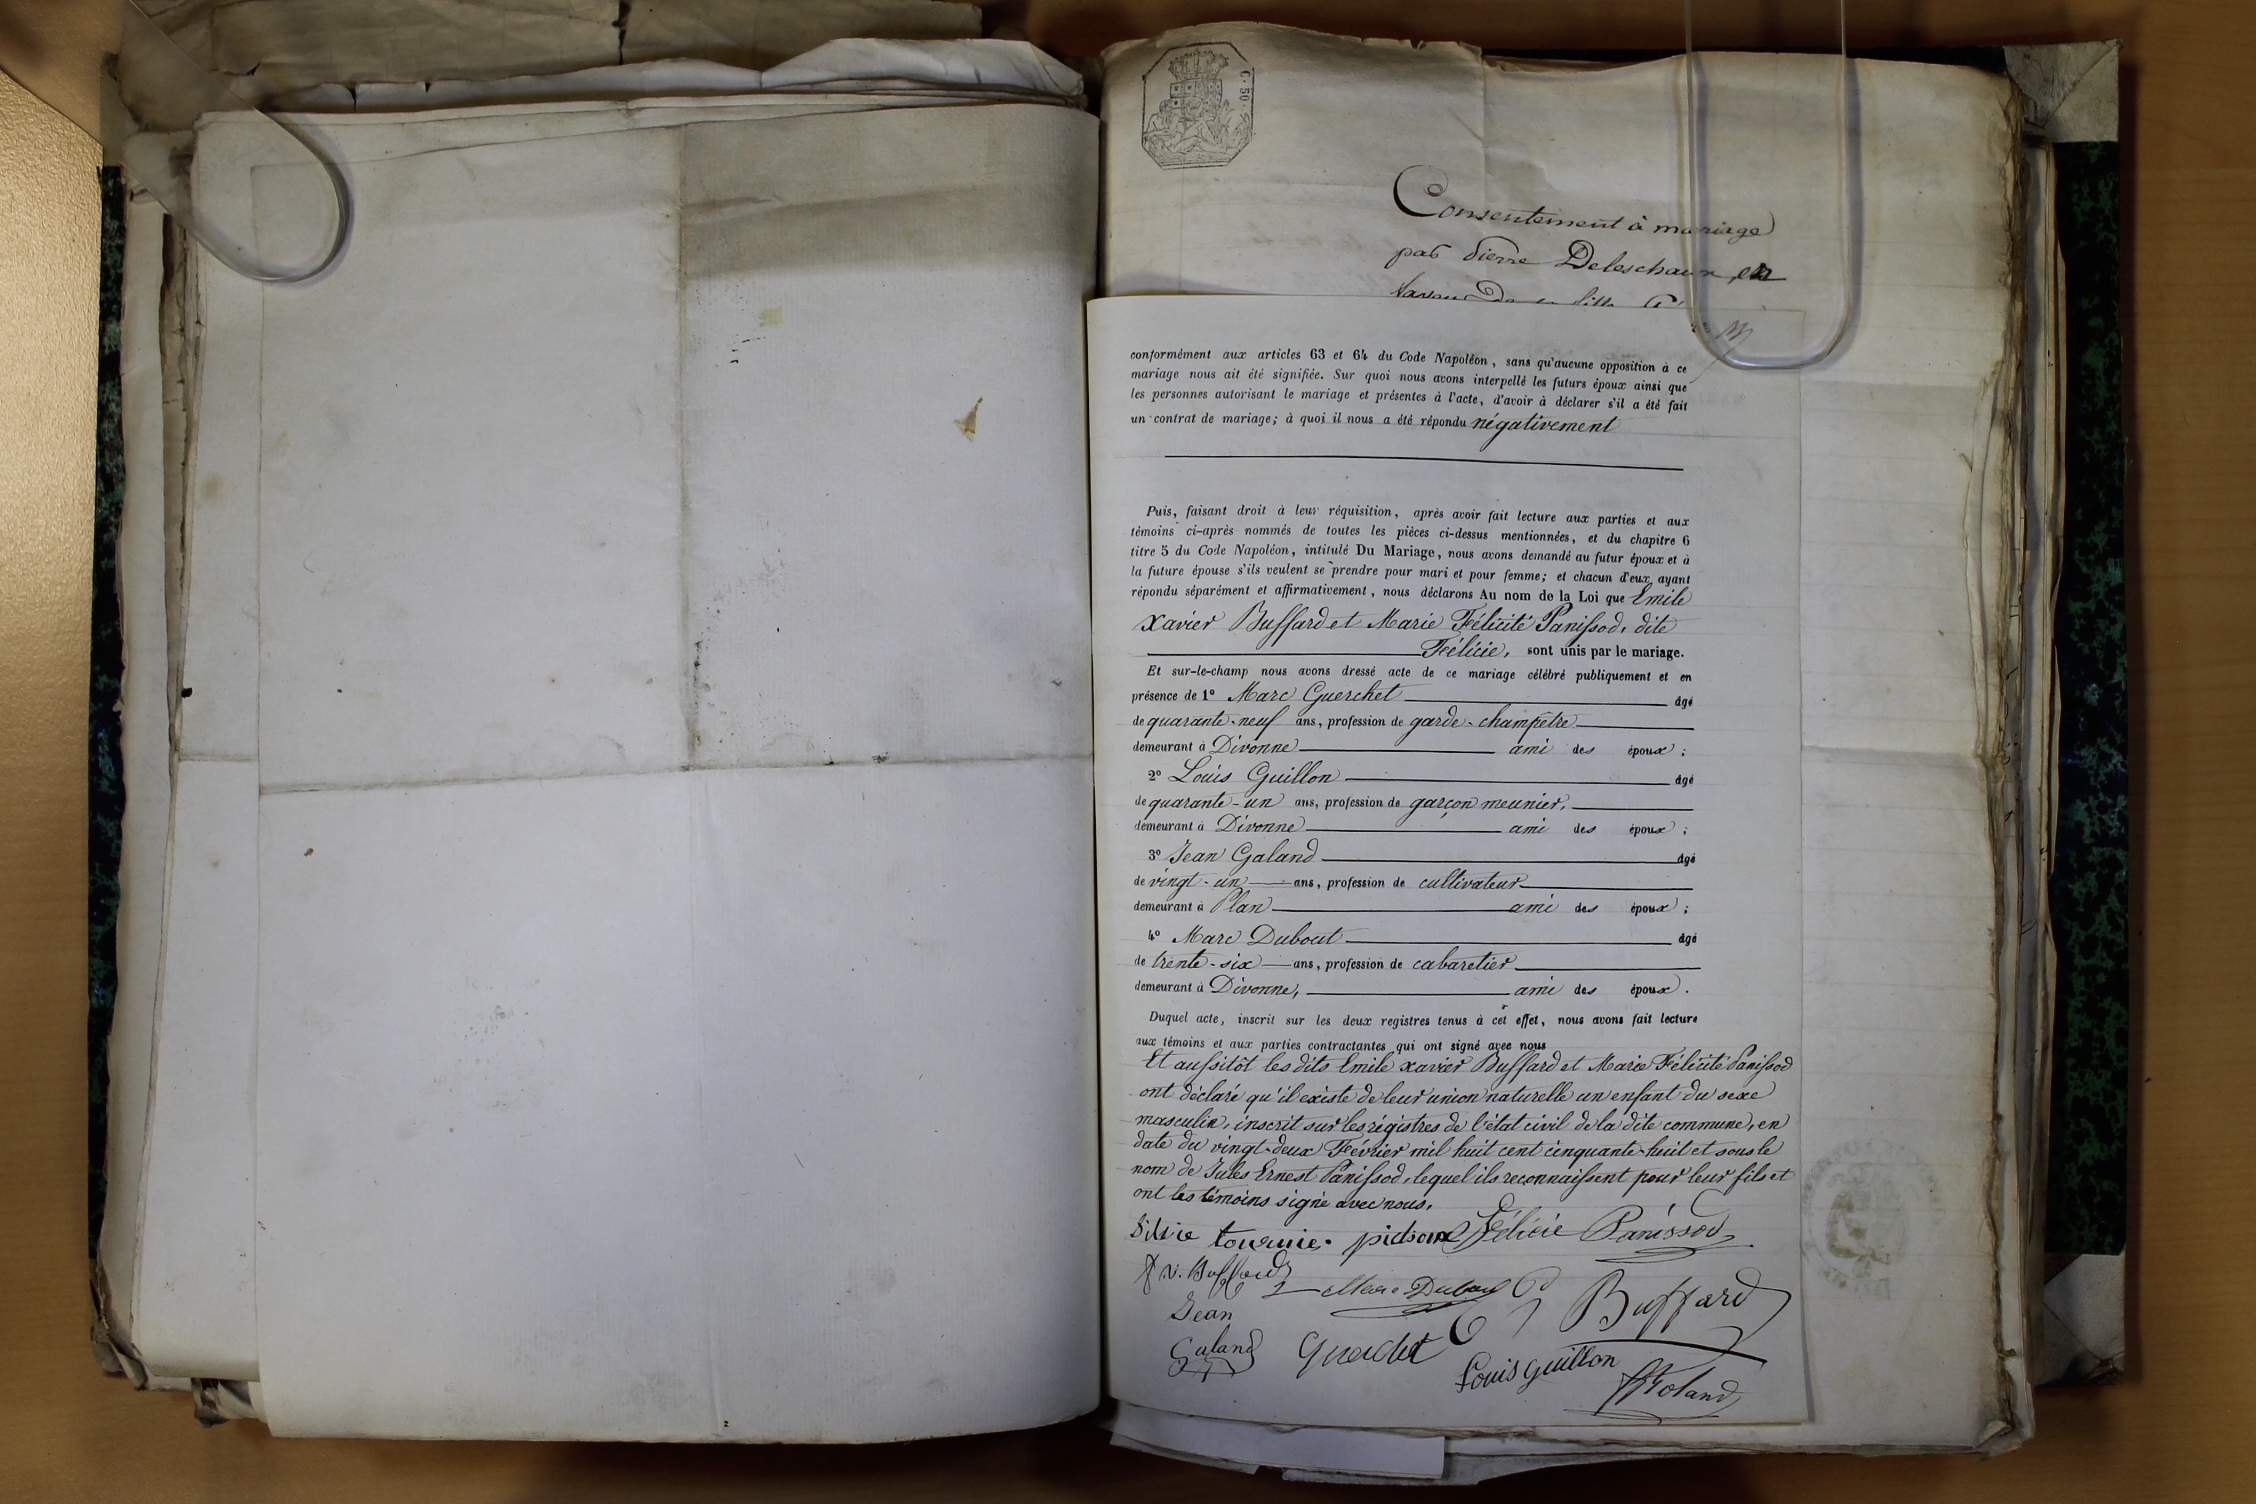 C. 50
Consentement à mariage
par Pierre Deleschaux, en
conformément aux articles 63 et 64 du Code Napoléon, sans qu'aucune opposition à ce
mariage nous ait été signifiée. Sur quoi nous avons interpellé les futurs époux ainsi que
les personnes autorisant le mariage et présentes à l'acte, d'avoir à déclarer s'il a été fait
un contrat de mariage; à quoi il nous a été répondu négativement
Puis, faisant droit à leur réquisition, après avoir fait lecture aux parties et aux
témoins ci-après nommés de toutes les pièces ci-dessus mentionnées, et du chapitre 6
titre 5 du Code Napoléon, intitulé Du Mariage, nous avons demandé au futur époux et à
la future épouse s'ils veulent se prendre pour mari et pour femme; et chacun d'eux ayant
répondu séparément et affirmativement, nous déclarons Au nom de la Loi que Emile
Xavier Buffard et Marie Félicité Panissod, dite
Félicie, sont unis par le mariage.
Et sur-le-champ nous avons dressé acte de ce mariage célébré publiquement et en
présence de 1° Marc Guerchet âgé
de quarante-neuf ans, profession de garde-champêtre
demeurant à Divonne ami des époux;
2° Louis Guillon âgé
de quarante-un ans, profession de garçon meunier,
demeurant à Divonne ami des époux;
3° Jean Galand âgé
de vingt-un ans, profession de cultivateur
demeurant à Plan ami des époux;
4° Marc Dubout âgé
de trente-six ans, profession de cabaretier
demeurant à Divonne, ami des époux.
Duquel acte, inscrit sur les deux registres tenus à cet effet, nous avons fait lecture
aux témoins et aux parties contractantes qui ont signé avec nous
Et aussitôt les dits Emile Xavier Buffard et Marie Félicité Panissod
ont déclaré qu'il existe de leur union naturelle un enfant du sexe
masculin, inscrit sur les régistres de l'état civil de la dite commune, en
date du vingt-deux Février mil huit cent cinquante-huit et sous le
nom de Jules Ernest Panissod, lequel ils reconnaissent pour leur fils et
ont les témoins signé avec nous.
Félicie Panissod
x. Buffard
Marc Dubout
Buffard
Jean
Galand
Guerchet
Louis Guillon
Roland